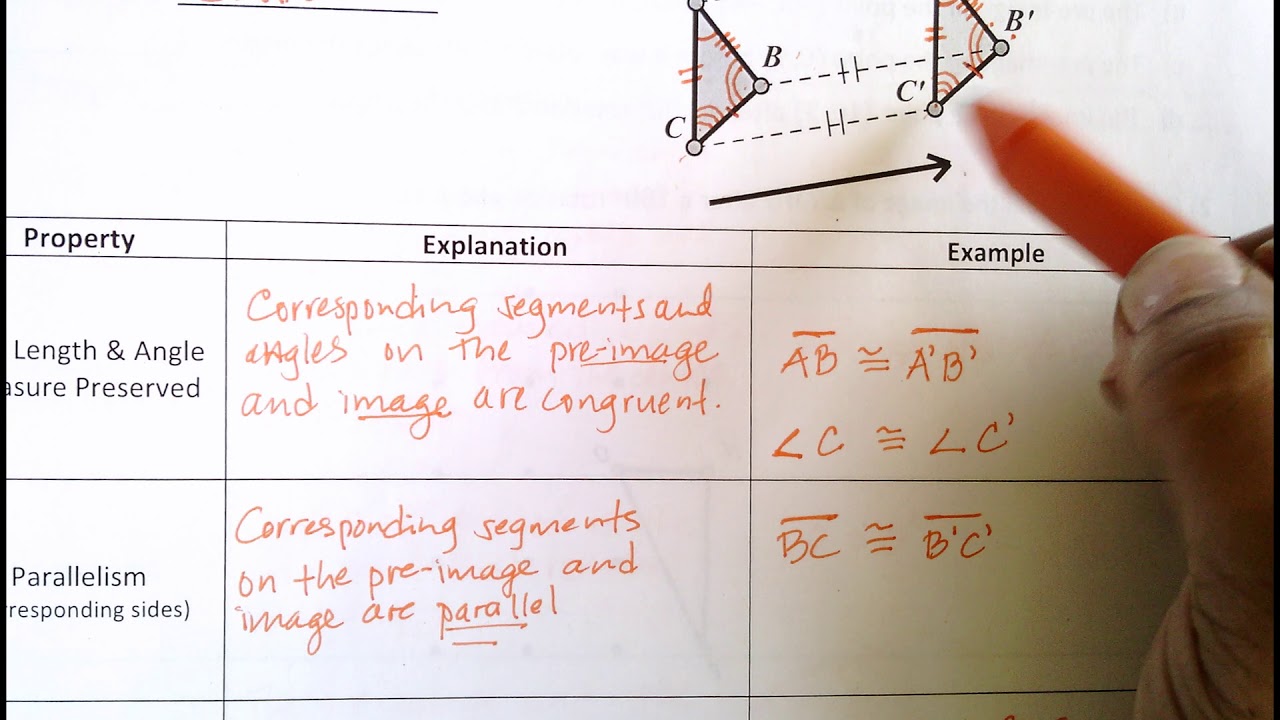 B'
B
C'
C
Property
Explanation
Example
Length & Angle
asure Preserved
Corresponding segments and
angles on the pre-image
and image are congruent.
AB ≅ A'B'
∠C ≅ ∠C'
Parallelism
responding sides)
Corresponding segments
on the pre-image and
image are parallel
BC ≅ B'C'